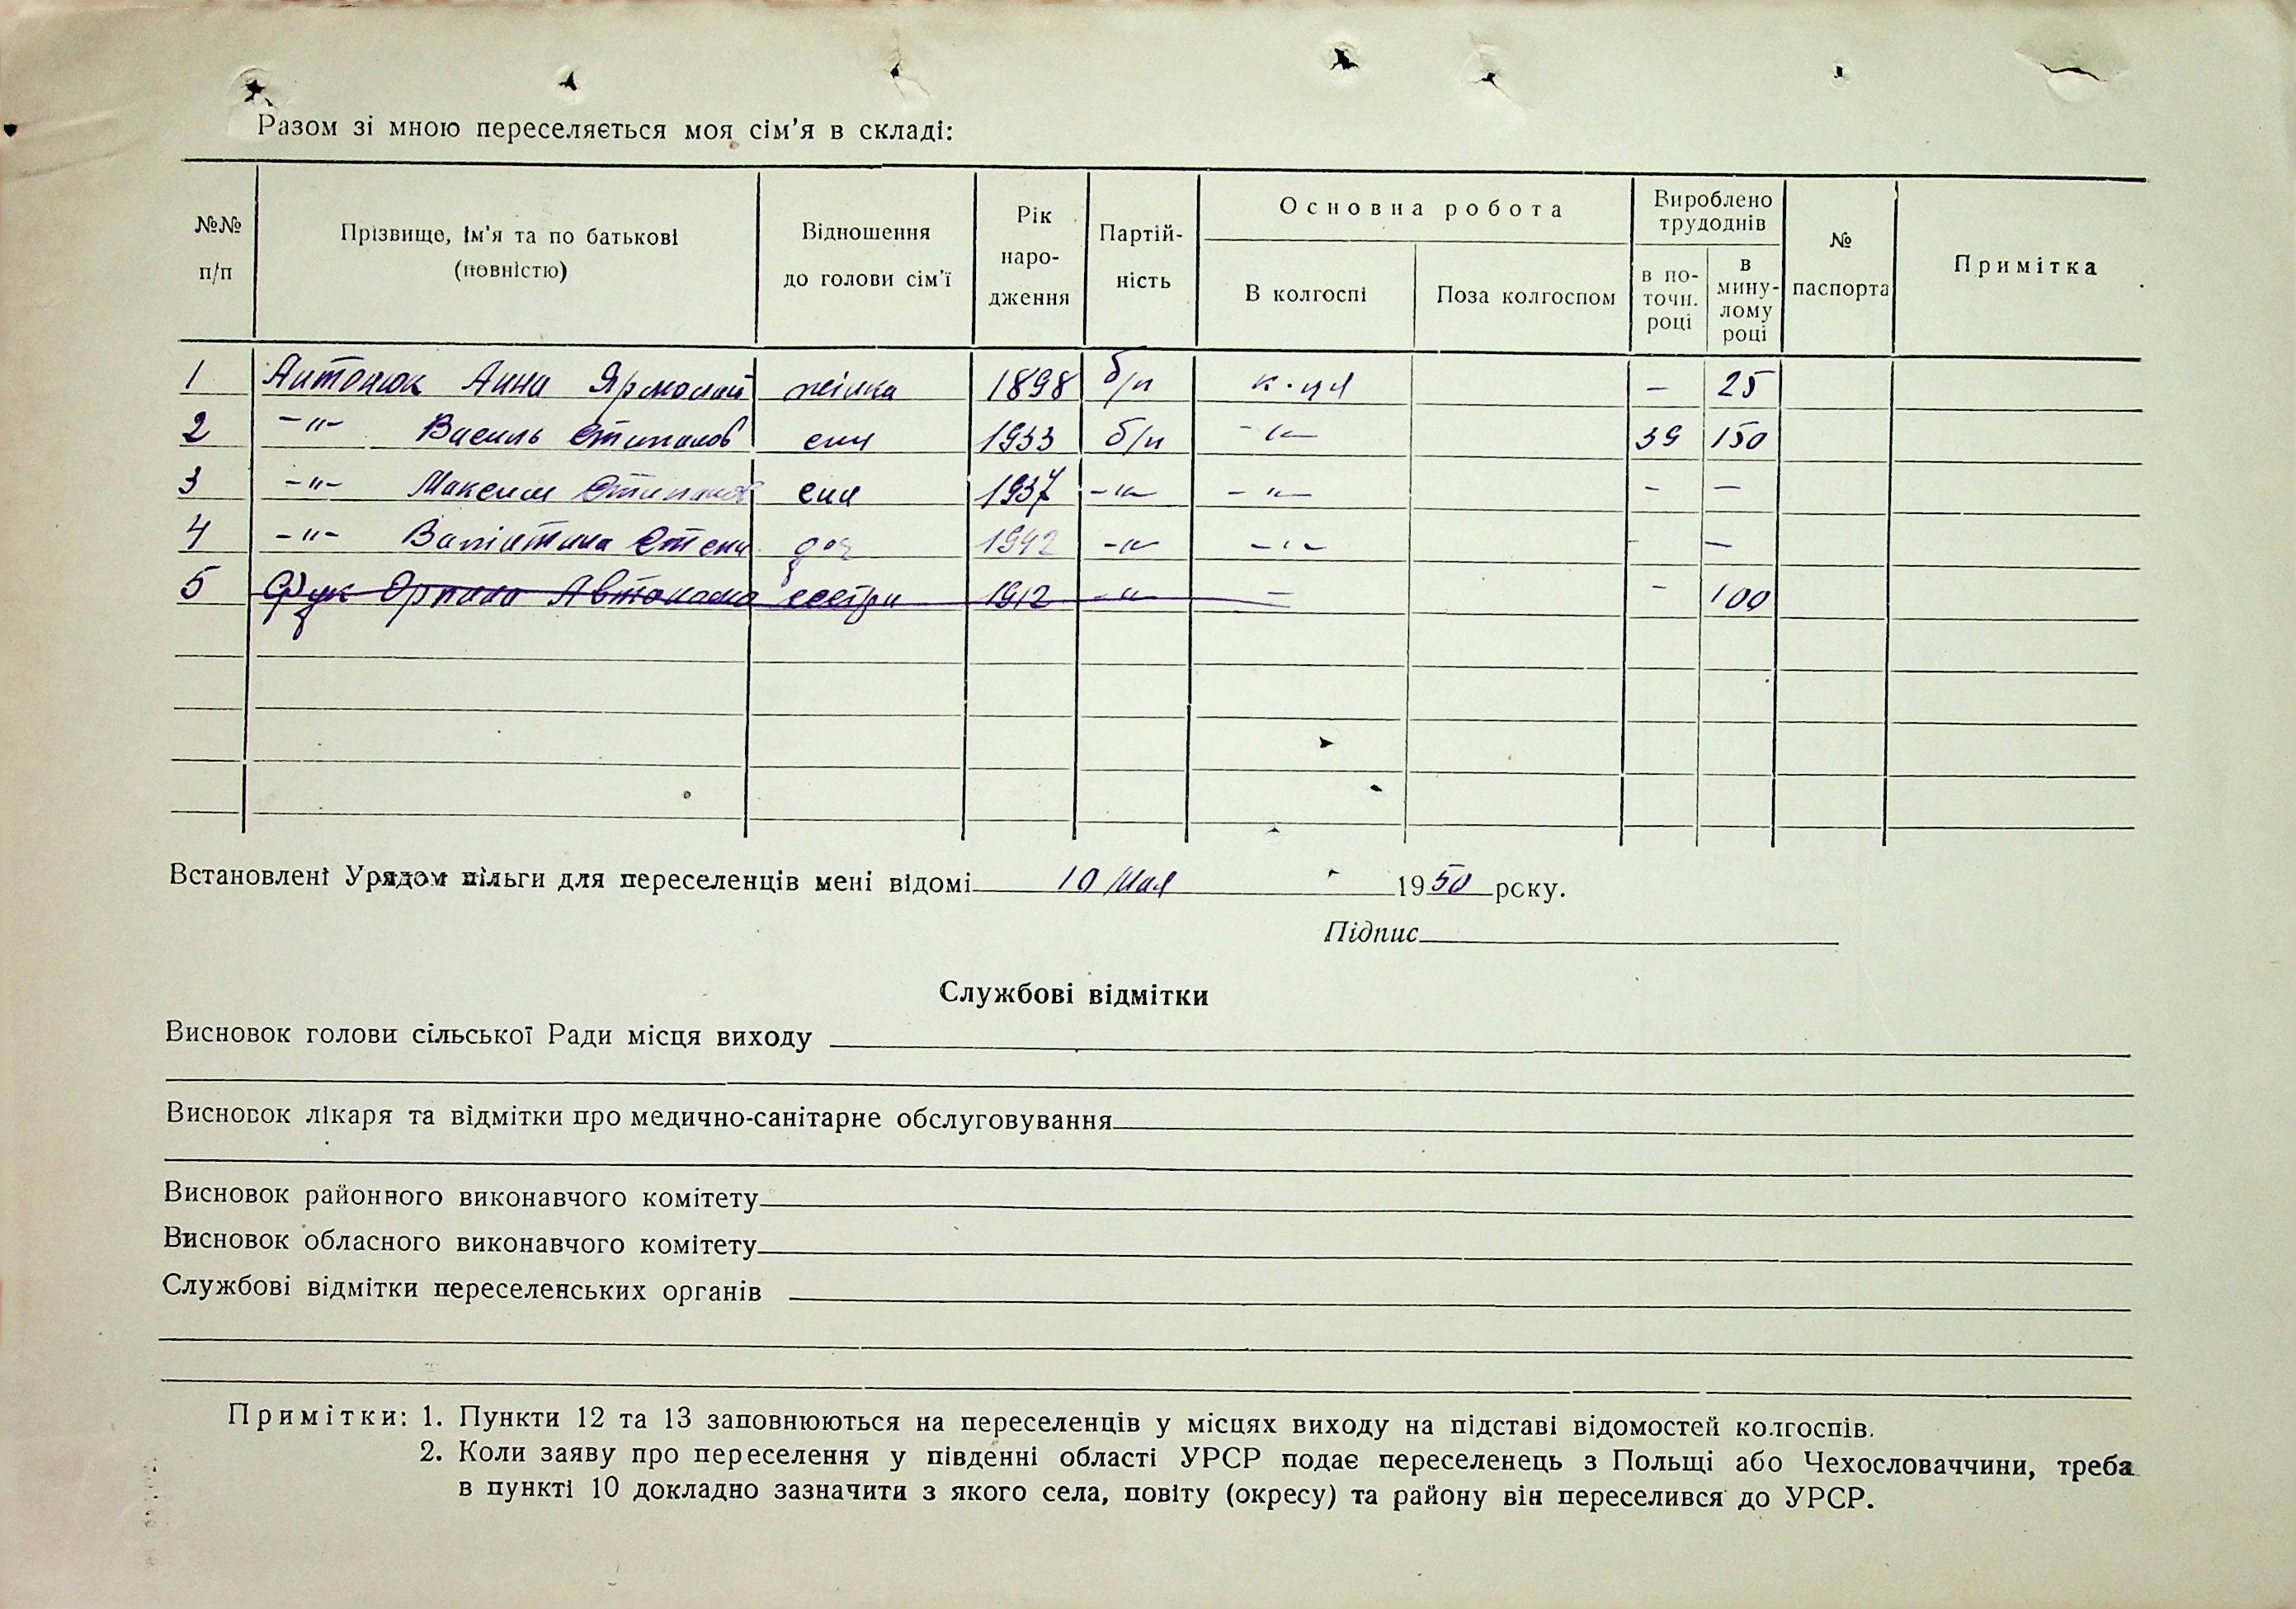 Разом зі мною переселяється моя сім'я в складі:
№№ п/п
Прізвище, ім'я та по батькові (повністю)
Відношення до голови сім'ї
Рік народження
Партійність
Основна робота
В колгоспі
Поза колгоспом
Вироблено трудоднів
в поточн. році
в минулому році
№ паспорта
Примітка
1 Антонюк Анна Ярмолай жінка 1898 б/п к-ця — 25
2 -"- Василь Степанов син 1933 б/п -"- 39 150
3 -"- Максим Степанов син 1937 -"- -"- — —
4 -"- Валентина Степа доч 1942 -"- -"- - —
5 Фук Автоно сестра 1912 -"- — - 100
Встановлені Урядом пільги для переселенців мені відомі 10 Мая 1950 року.
Підпис
Службові відмітки
Висновок голови сільської Ради місця виходу
Висновок лікаря та відмітки про медично-санітарне обслуговування
Висновок районного виконавчого комітету
Висновок обласного виконавчого комітету
Службові відмітки переселенських органів
Примітки: 1. Пункти 12 та 13 заповнюються на переселенців у місцях виходу на підставі відомостей колгоспів.
2. Коли заяву про переселення у південні області УРСР подає переселенець з Польщі або Чехословаччини, треба
в пункті 10 докладно зазначити з якого села, повіту (окресу) та району він переселився до УРСР.